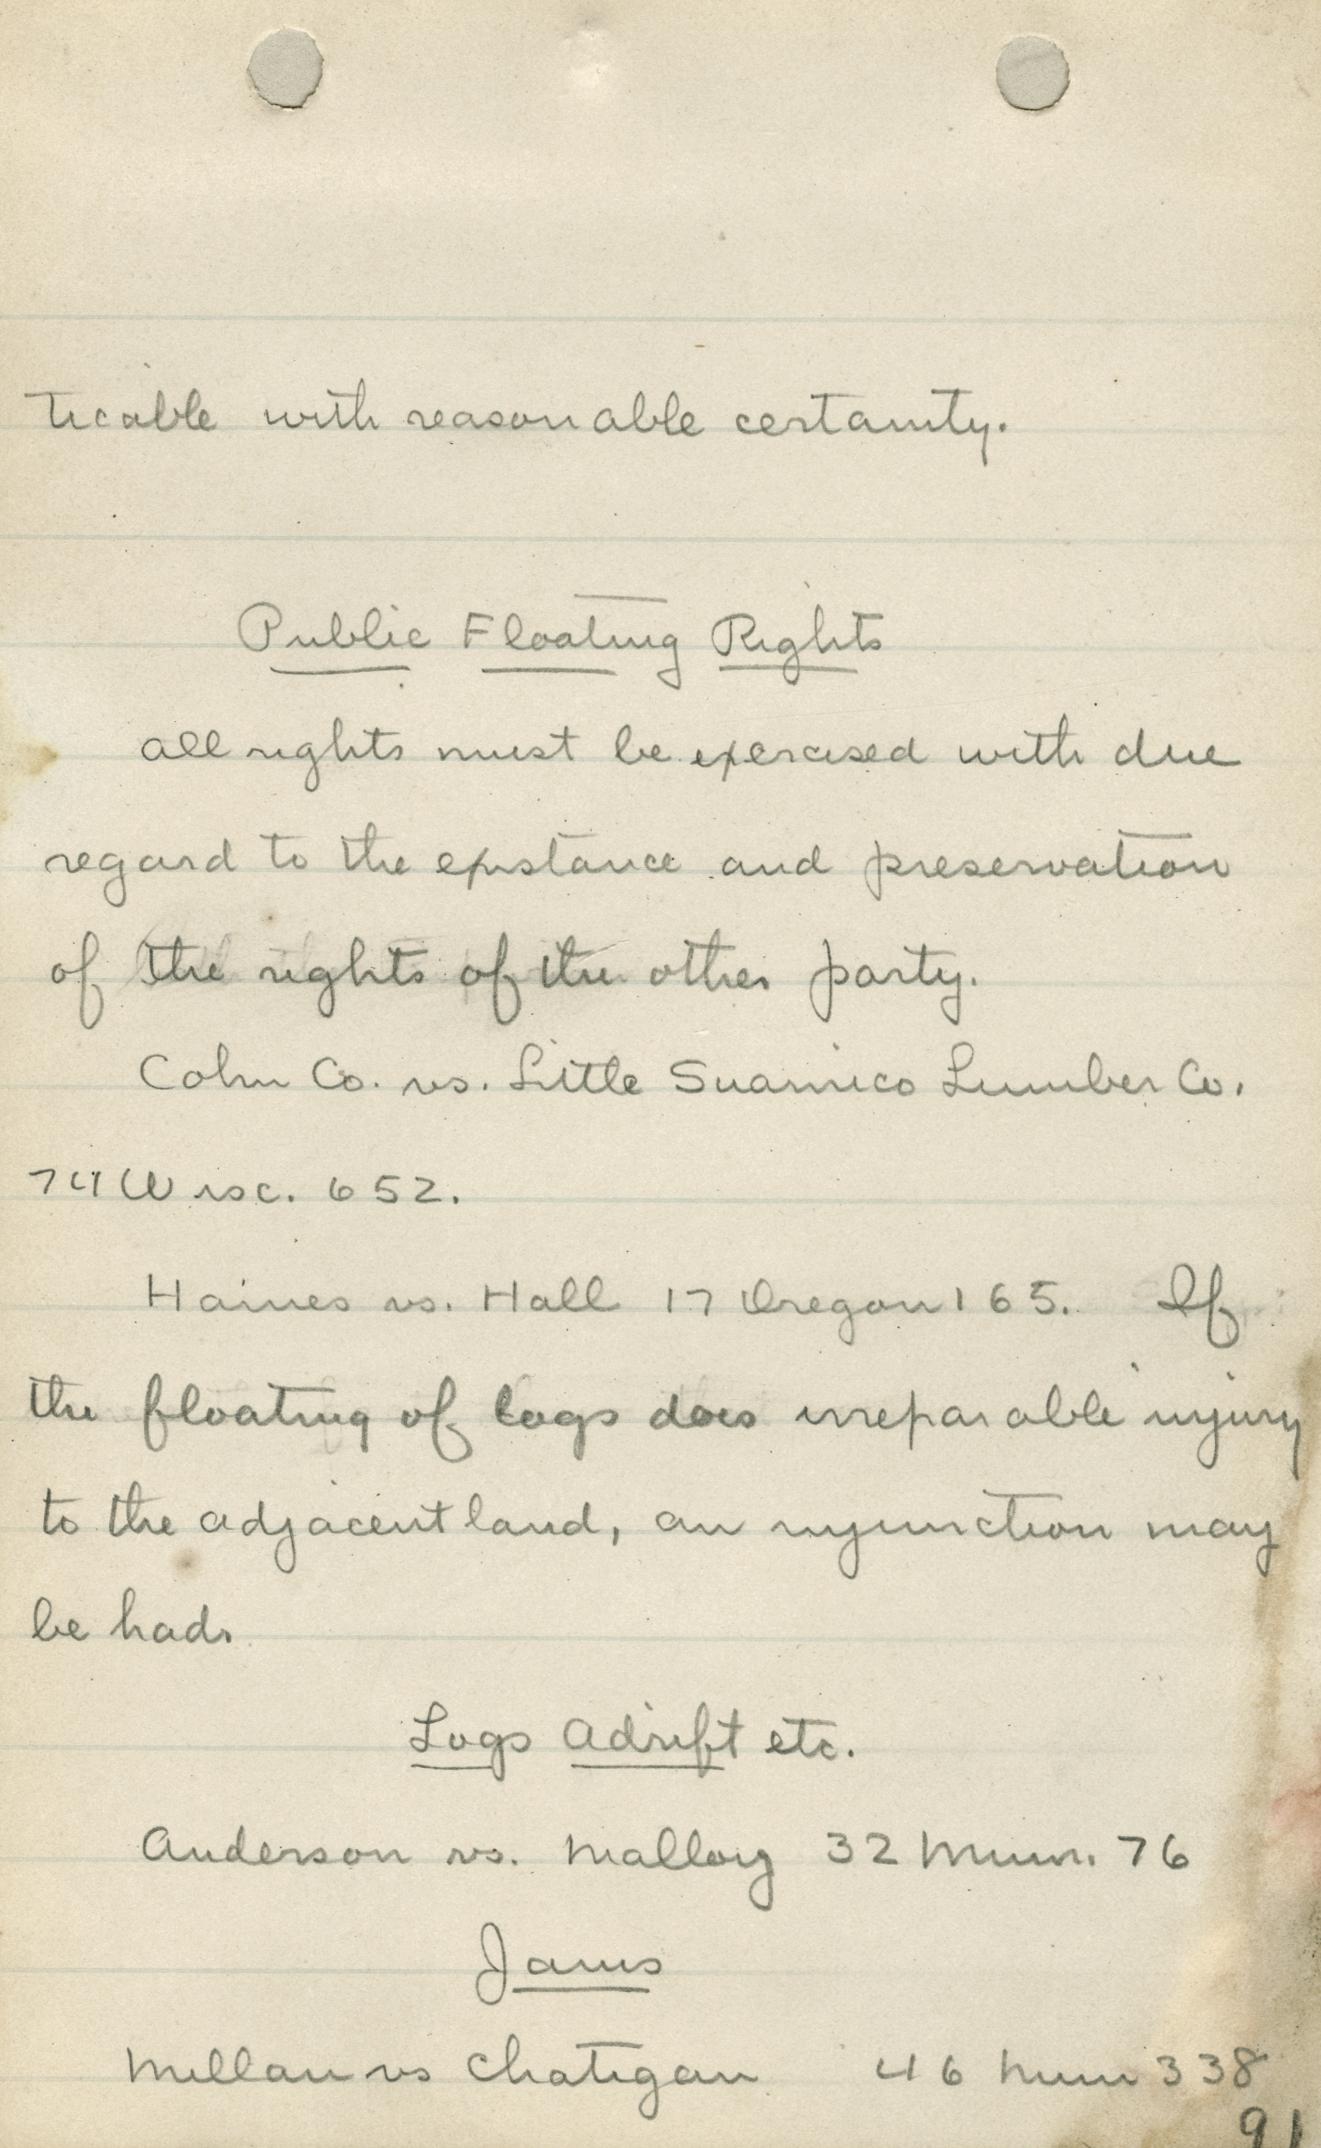 ticable with reasonable certainty.
Public Floating Rights
All rights must be exercised with due
regard to the existance and preservation
of the rights of the other party.
Cohn Co. vs. Little Suamico Lumber Co.
74 Wisc. 652.
Haines vs. Hall 17 Oregon 165. If
the floating of logs does irreparable injury
to the adjacent land, an injunction may
be had.
Logs Adrift etc.
Anderson vs. Malloy 32 Minn. 76
Jams
Mellan vs Chatigan 46 Minn 338
91